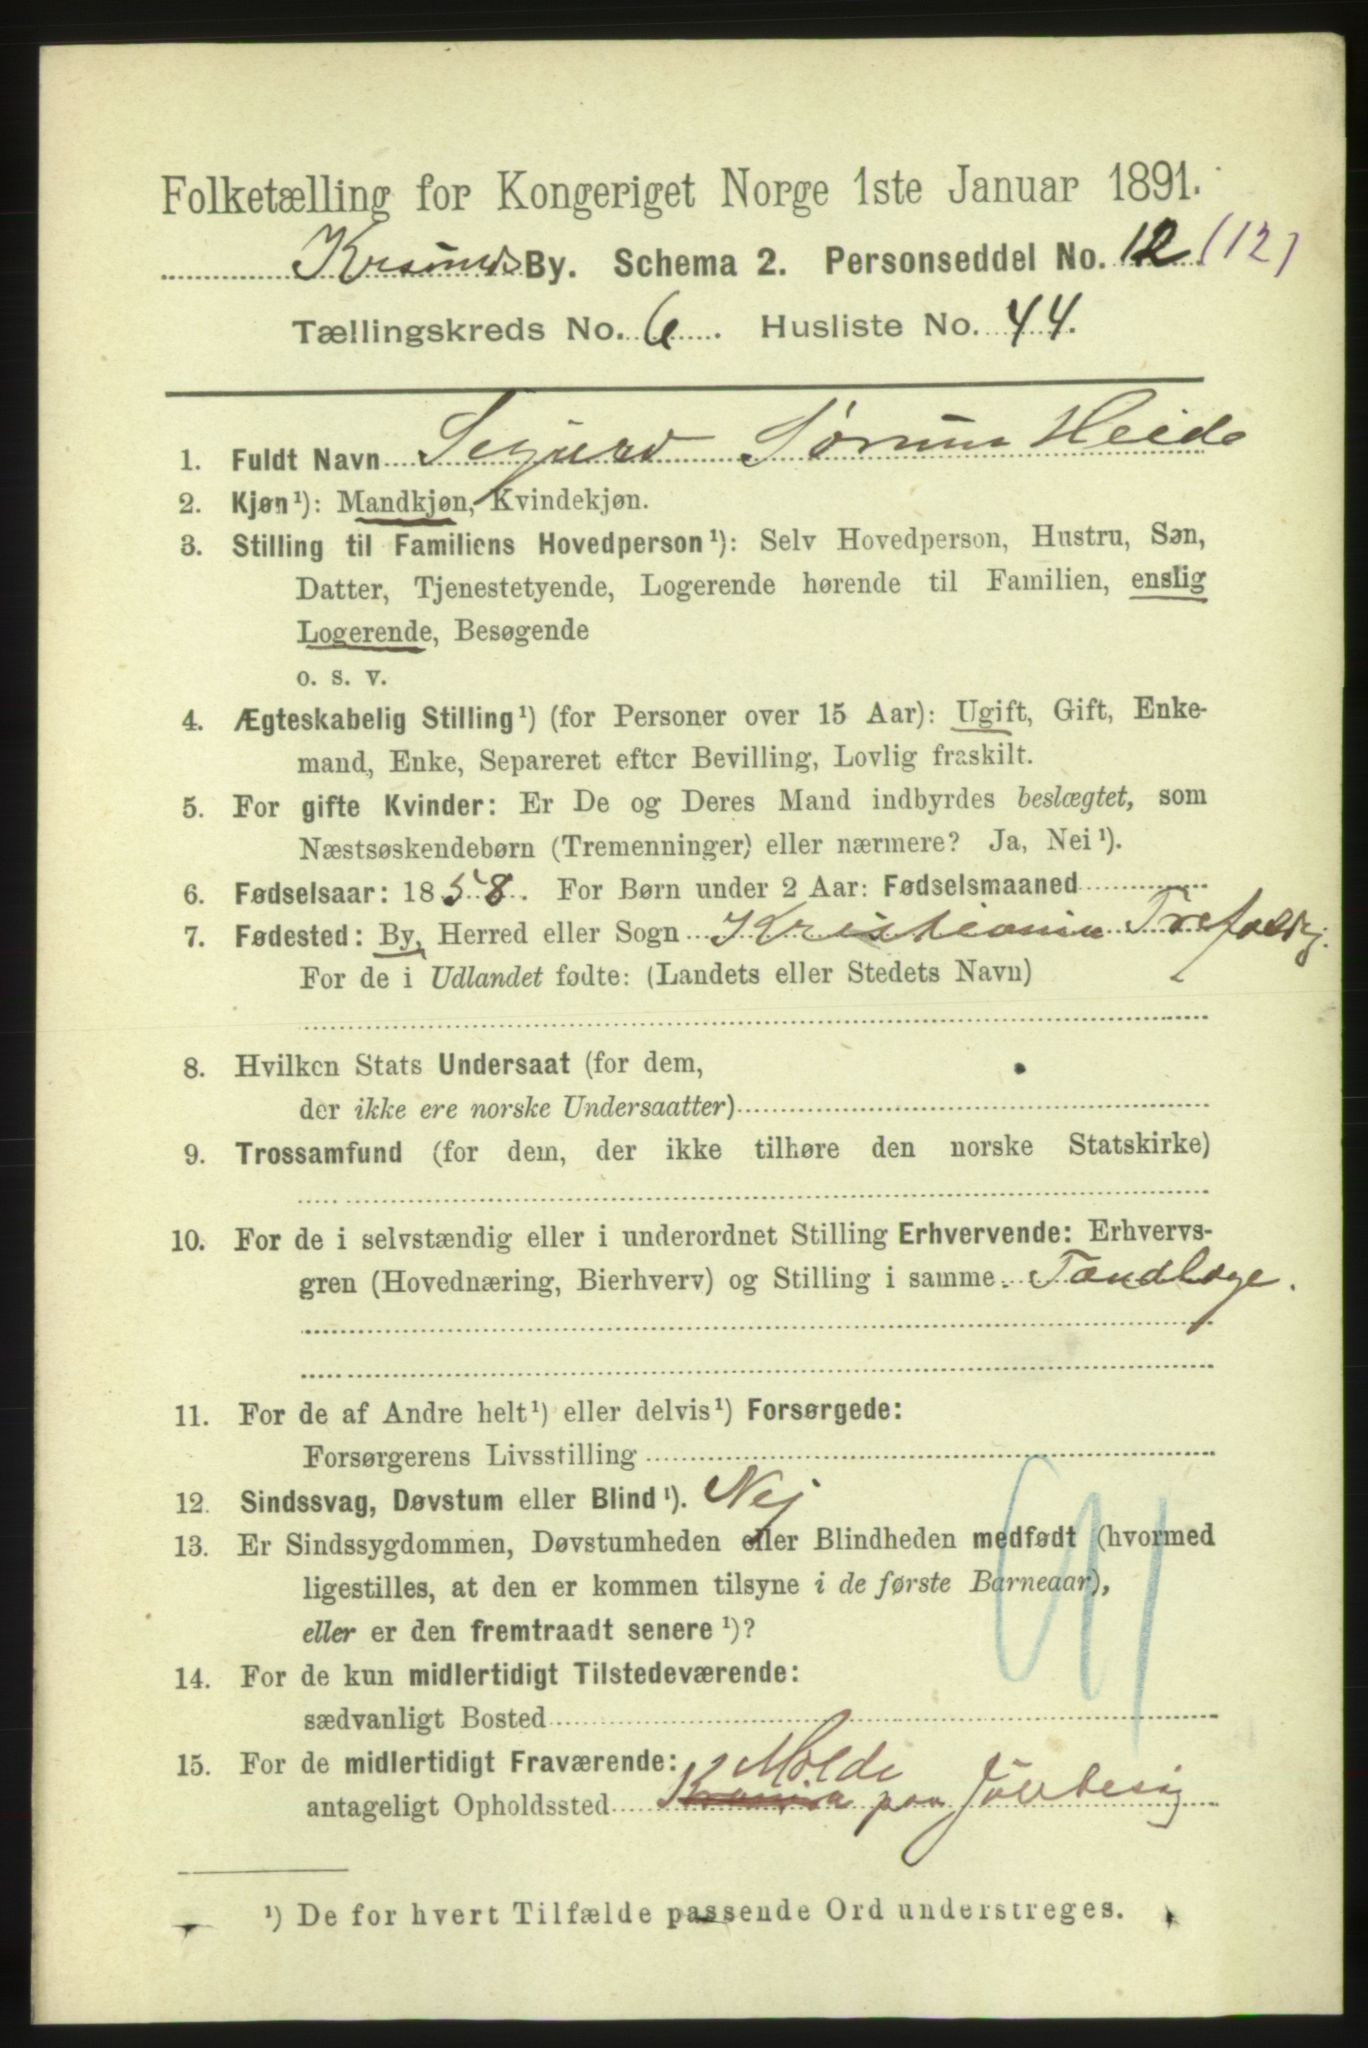 Folketælling for Kongeriget Norge 1ste Januar 1891.
Krsunds By. Schema 2. Personseddel No. 12 (12)
Tællingskreds No. 6. Husliste No. 44.
1. Fuldt Navn Sigurd Sørum Heide
2. Kjøn¹): Mandkjøn, Kvindekjøn.
3. Stilling til Familiens Hovedperson¹): Selv Hovedperson, Hustru, Søn,
Datter, Tjenestetyende, Logerende hørende til Familien, enslig
Logerende, Besøgende
o. s. v.
4. Ægteskabelig Stilling¹) (for Personer over 15 Aar): Ugift, Gift, Enke-
mand, Enke, Separeret efter Bevilling, Lovlig fraskilt.
5. For gifte Kvinder: Er De og Deres Mand indbyrdes beslægtet, som
Næstsøskendebørn (Tremenninger) eller nærmere? Ja, Nei¹).
6. Fødselsaar: 1858. For Børn under 2 Aar: Fødselsmaaned
7. Fødested: By, Herred eller Sogn Kristiania Trefoldig.
For de i Udlandet fødte: (Landets eller Stedets Navn)
8. Hvilken Stats Undersaat (for dem,
der ikke ere norske Undersaatter)
9. Trossamfund (for dem, der ikke tilhøre den norske Statskirke)
10. For de i selvstændig eller i underordnet Stilling Erhvervende: Erhvervs-
gren (Hovednæring, Bierhverv) og Stilling i samme Tandlæge.
11. For de af Andre helt¹) eller delvis¹) Forsørgede:
Forsørgerens Livsstilling
12. Sindssvag, Døvstum eller Blind¹). Nej
13. Er Sindssygdommen, Døvstumheden eller Blindheden medfødt (hvormed
ligestilles, at den er kommen tilsyne i de første Barneaar),
eller er den fremtraadt senere¹)?
14. For de kun midlertidigt Tilstedeværende:
sædvanligt Bosted
15. For de midlertidigt Fraværende: Molde
antageligt Opholdssted paa Julebesøg
¹) De for hvert Tilfælde passende Ord understreges.